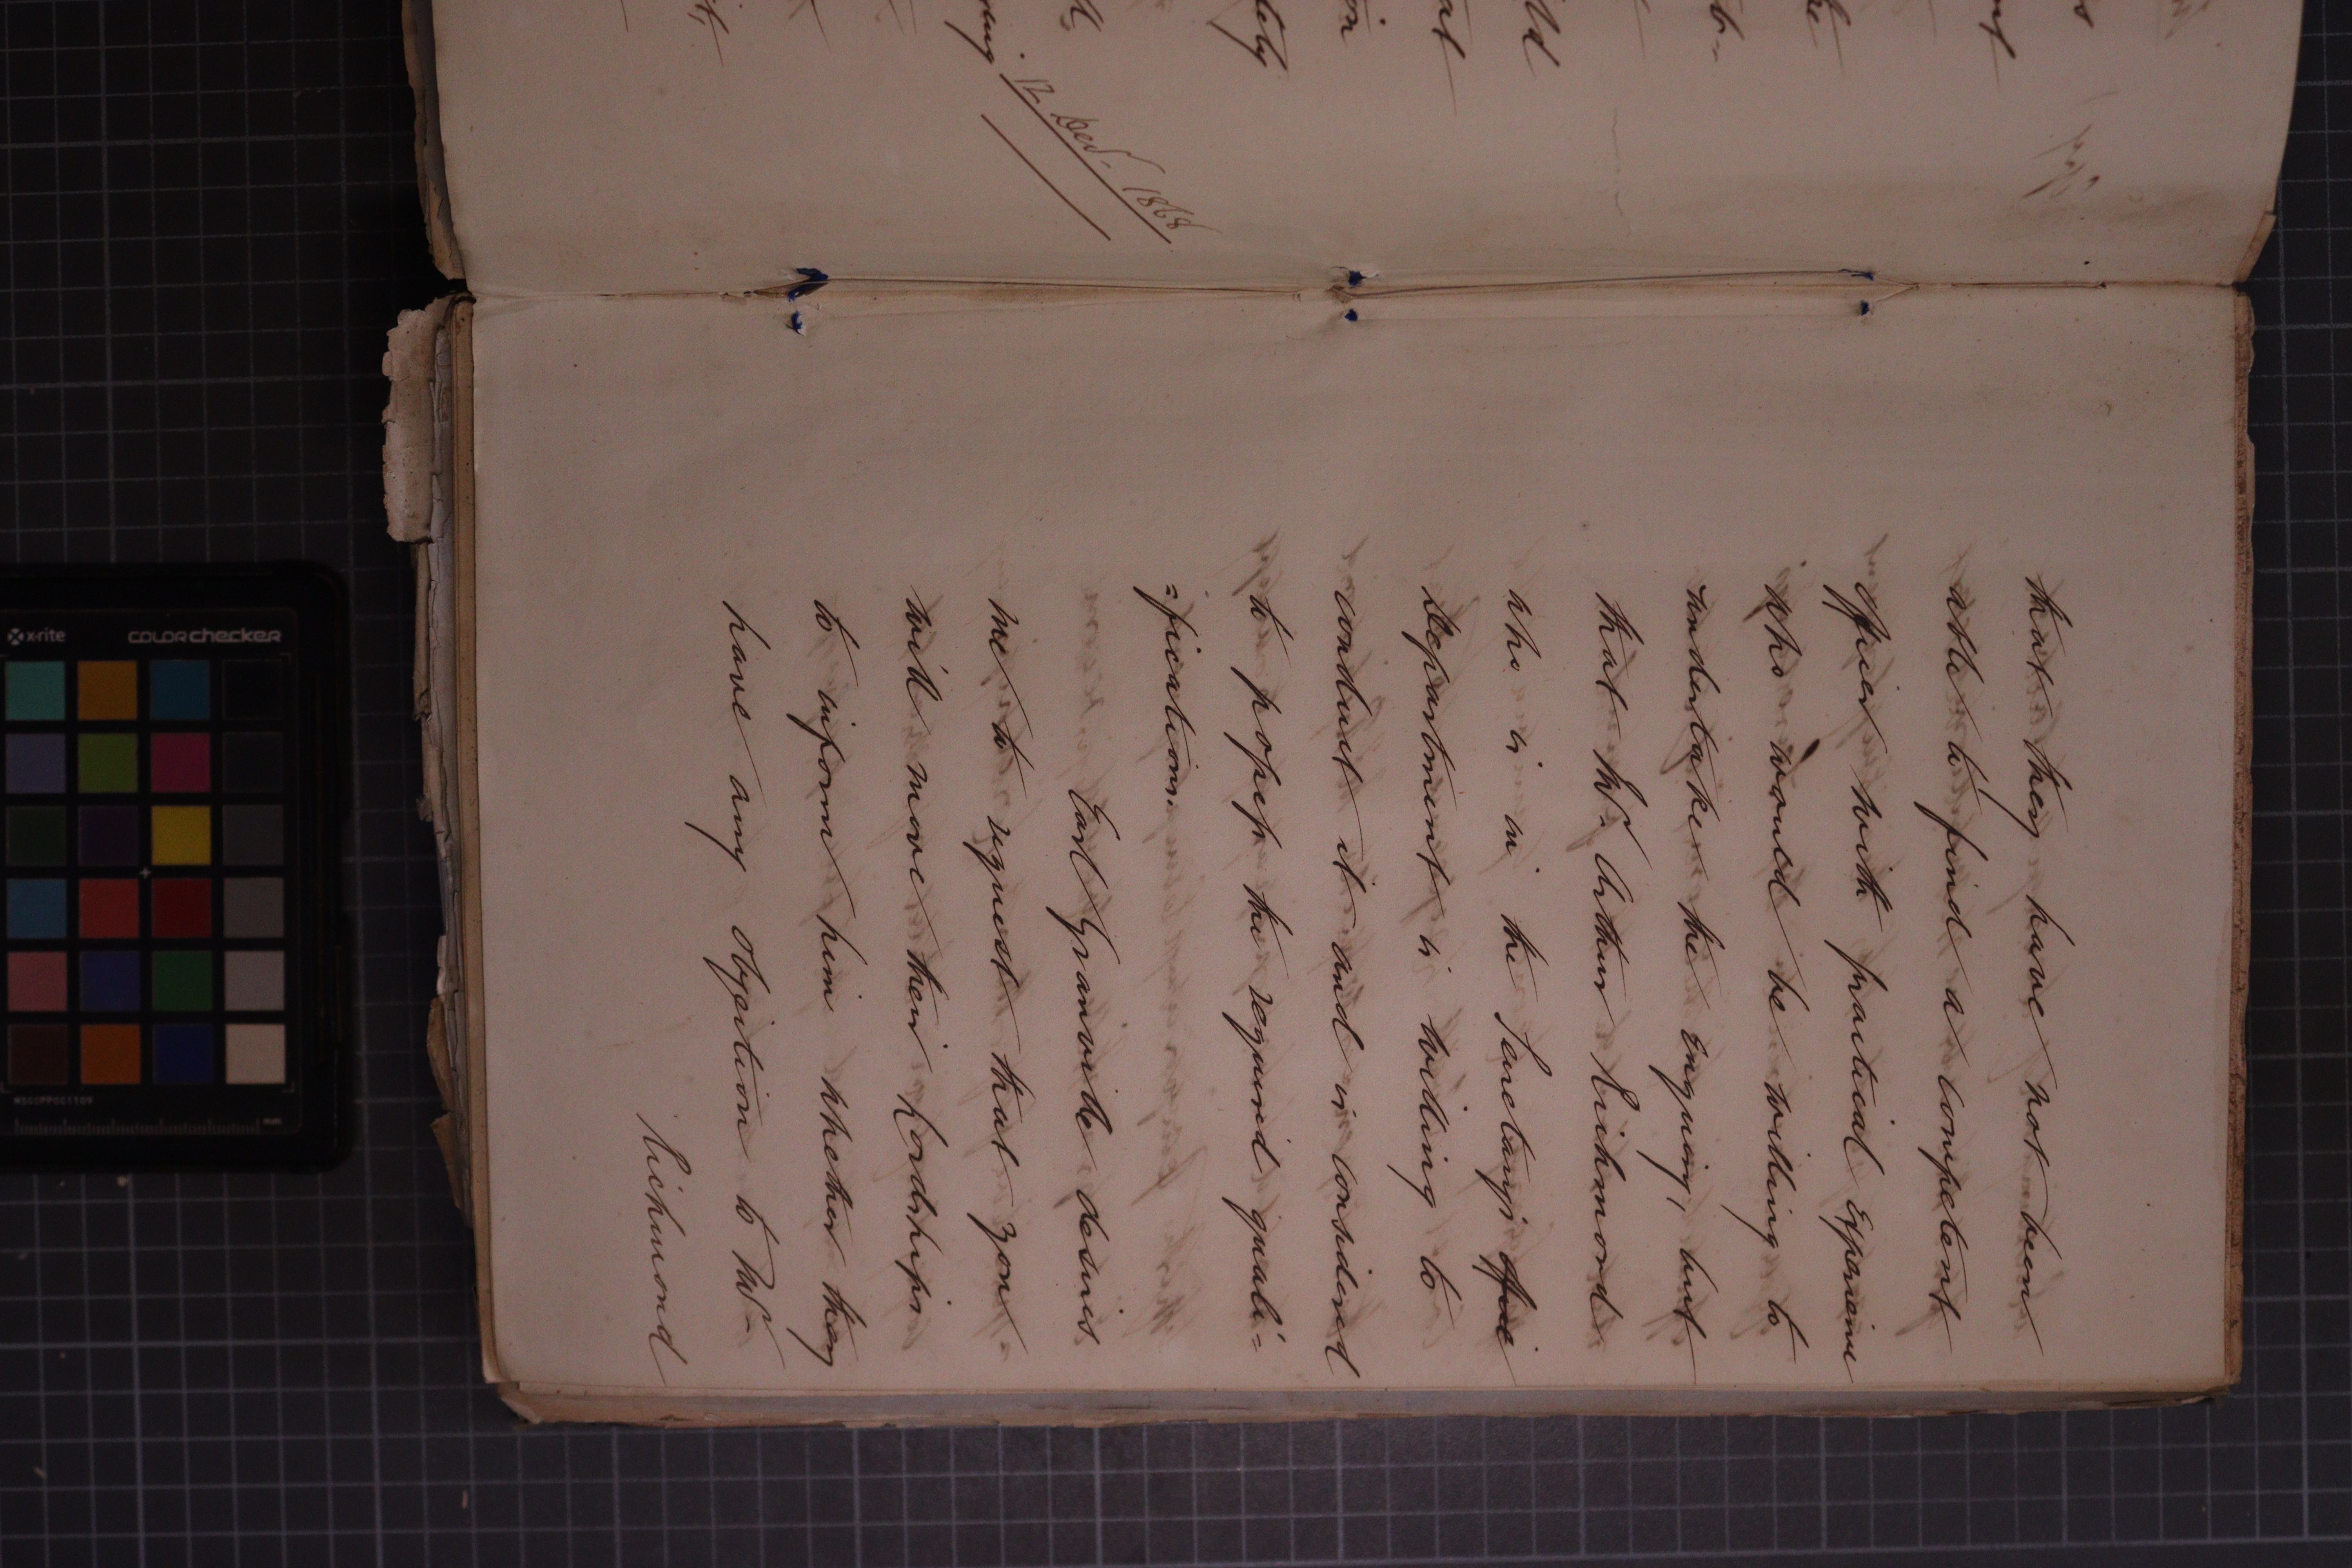 12 Decr. 1868
that they have not been
able to find a competent
officer with practical Experience
who would be willing to
undertake the Enquiry, but
that Mr. Arthur Richmond
who is in the Secretary's Office
Department is willing to
conduct it and is considered
to possess the required quali-
=fication.
Earl Granville desires
me to request that you
will move their Lordships
to inform him whether they
have any objection to Mr.
Richmond
x-rite
colorchecker